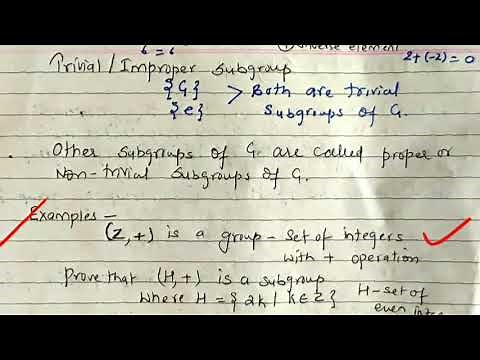 6 = 6
inverse element
2+(-2)=0
Trivial / Improper Subgroup
{G} > Both are trivial
{e} Subgroups of G.
Other subgroups of G are called proper or
Non-trivial subgroups of G.
Examples -
(Z,+) is a group - set of integers
with + operation
Prove that (H,+) is a subgroup
where H = {2k | k∈Z} H-set of
even inte